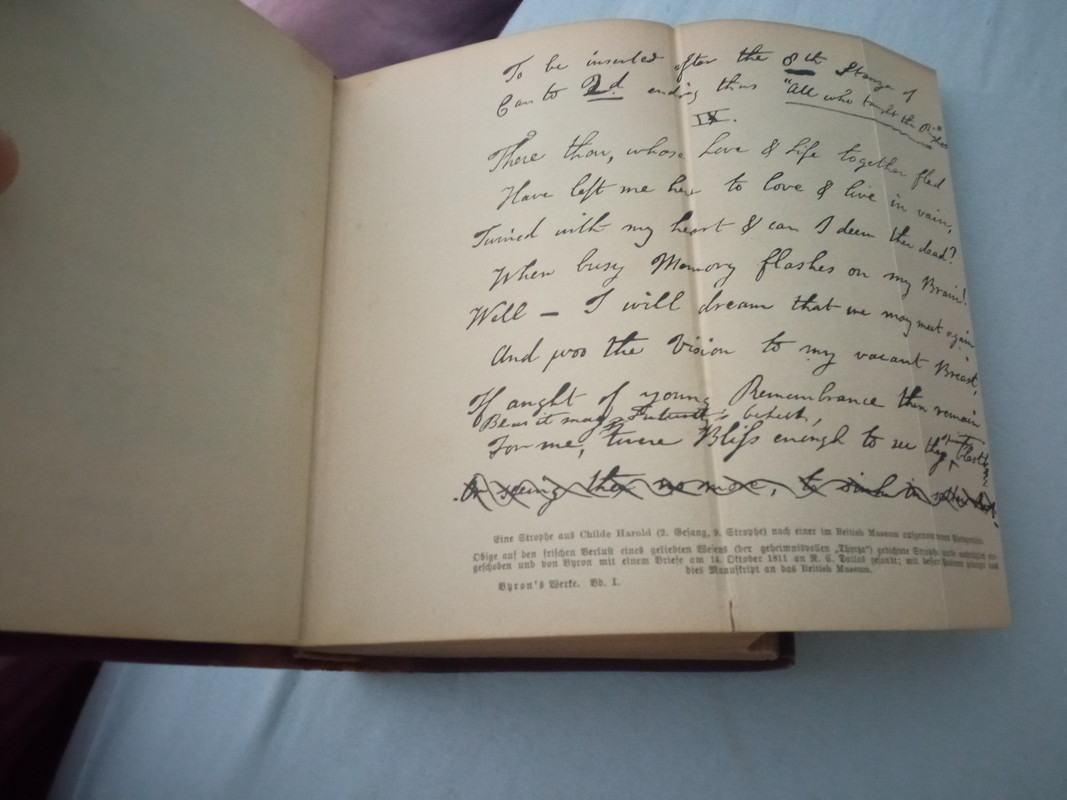 To be inserted after the 8th Stanza of
Canto 2d ending thus "All who taught the Right"
IX.
There thou, whose Love & Life together fled
Have left me here to love & live in vain,
Twined with my heart & can I deem thee dead?
When busy Memory flashes on my Brain!
Well — I will dream that we may meet again
And woo the Vision to my vacant Breast,
If aught of young Remembrance then remain
Be as it may Futurity's behest,
For me, twere Bliss enough to see thy blest
Or seeing thee no more, to sink in
Eine Strophe aus Childe Harold (2. Gesang, 9. Strophe) nach einer im British Museum
Obige auf den frischen Verlust eines geliebten Wesens (der geheimnisvollen „Thyrza“) gedichtete Strophe
geschoben und von Byron mit einem Briefe am 14. Oktober 1811 an R. C. Dallas gesandt; mit dessen
dies Manuskript an das British Museum.
Byron's Werke. Bd. 1.